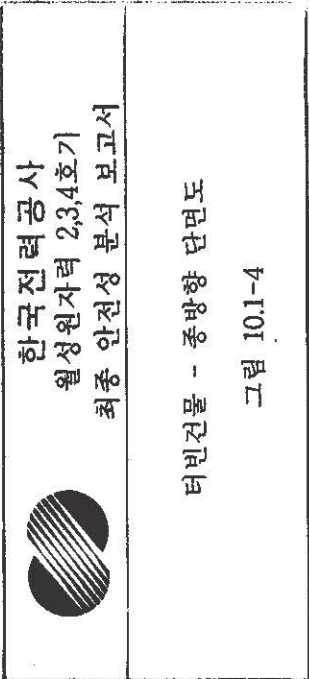 한국전력공사
월성원자력 2,3,4호기
최종 안전성 분석 보고서
터빈건물 - 종방향 단면도
그림 10.1-4